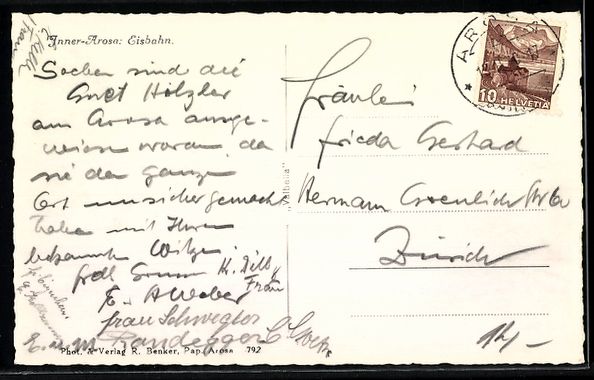 Inner-Arosa: Eisbahn.
Soeben sind die
Gret Hölzler
aus Arosa ausge-
wiesen worden da
sie den ganzen
Ort unsicher gemacht
habe mit Ihren
bekannten Witze
frdl Gruss H. Dill u
Frau
E. A. Weber
frau Schwegler
E. u. M. Randegger
Phot. & Verlag R. Benker, Pap. Arosa 792
"Valbella"
AROSA
10 HELVETIA
Fräulein
Frieda Gerhard
Hermann Str
Zürich
12/-